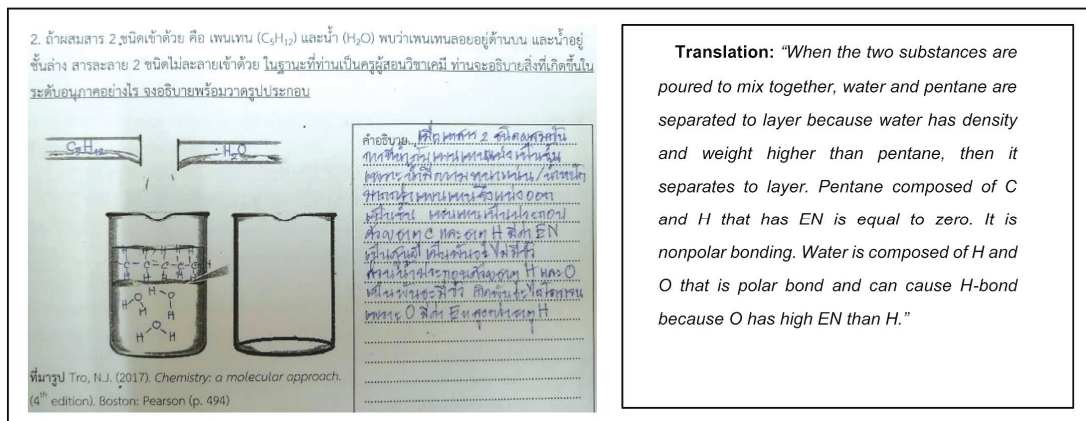 2. ถ้าผสมสาร 2 ชนิดเข้าด้วย คือ เพนเทน (C₅H₁₂) และน้ำ (H₂O) พบว่าเพนเทนลอยอยู่ด้านบน และน้ำอยู่
ชั้นล่าง สารละลาย 2 ชนิดไม่ละลายเข้าด้วย ในฐานะที่ท่านเป็นครูผู้สอนวิชาเคมี ท่านจะอธิบายสิ่งที่เกิดขึ้นใน
ระดับอนุภาคอย่างไร จงอธิบายพร้อมวาดรูปประกอบ
C₅H₁₂
H₂O
คำอธิบาย เมื่อเทสาร 2 ชนิดผสมกัน
เพราะน้ำมีความหนาแน่น/น้ำหนัก
มากกว่าเพนเทนจึงแบ่งออก
เป็นชั้น เพนเทนเป็นประกอบ
ด้วยธาตุ C และธาตุ H มีค่า EN
เป็นศูนย์ เป็นพันธะไม่มีขั้ว
ส่วนน้ำประกอบด้วยธาตุ H และ O
เป็นพันธะมีขั้ว เกิดพันธะไฮโดรเจน
เพราะ O มีค่า EN สูงกว่าธาตุ H
H H H H H
C C C C C
H O H
H O H
H O H
ที่มารูป Tro, N.J. (2017). Chemistry: a molecular approach.
(4th edition). Boston: Pearson (p. 494)
Translation: “When the two substances are
poured to mix together, water and pentane are
separated to layer because water has density
and weight higher than pentane, then it
separates to layer. Pentane composed of C
and H that has EN is equal to zero. It is
nonpolar bonding. Water is composed of H and
O that is polar bond and can cause H-bond
because O has high EN than H.”